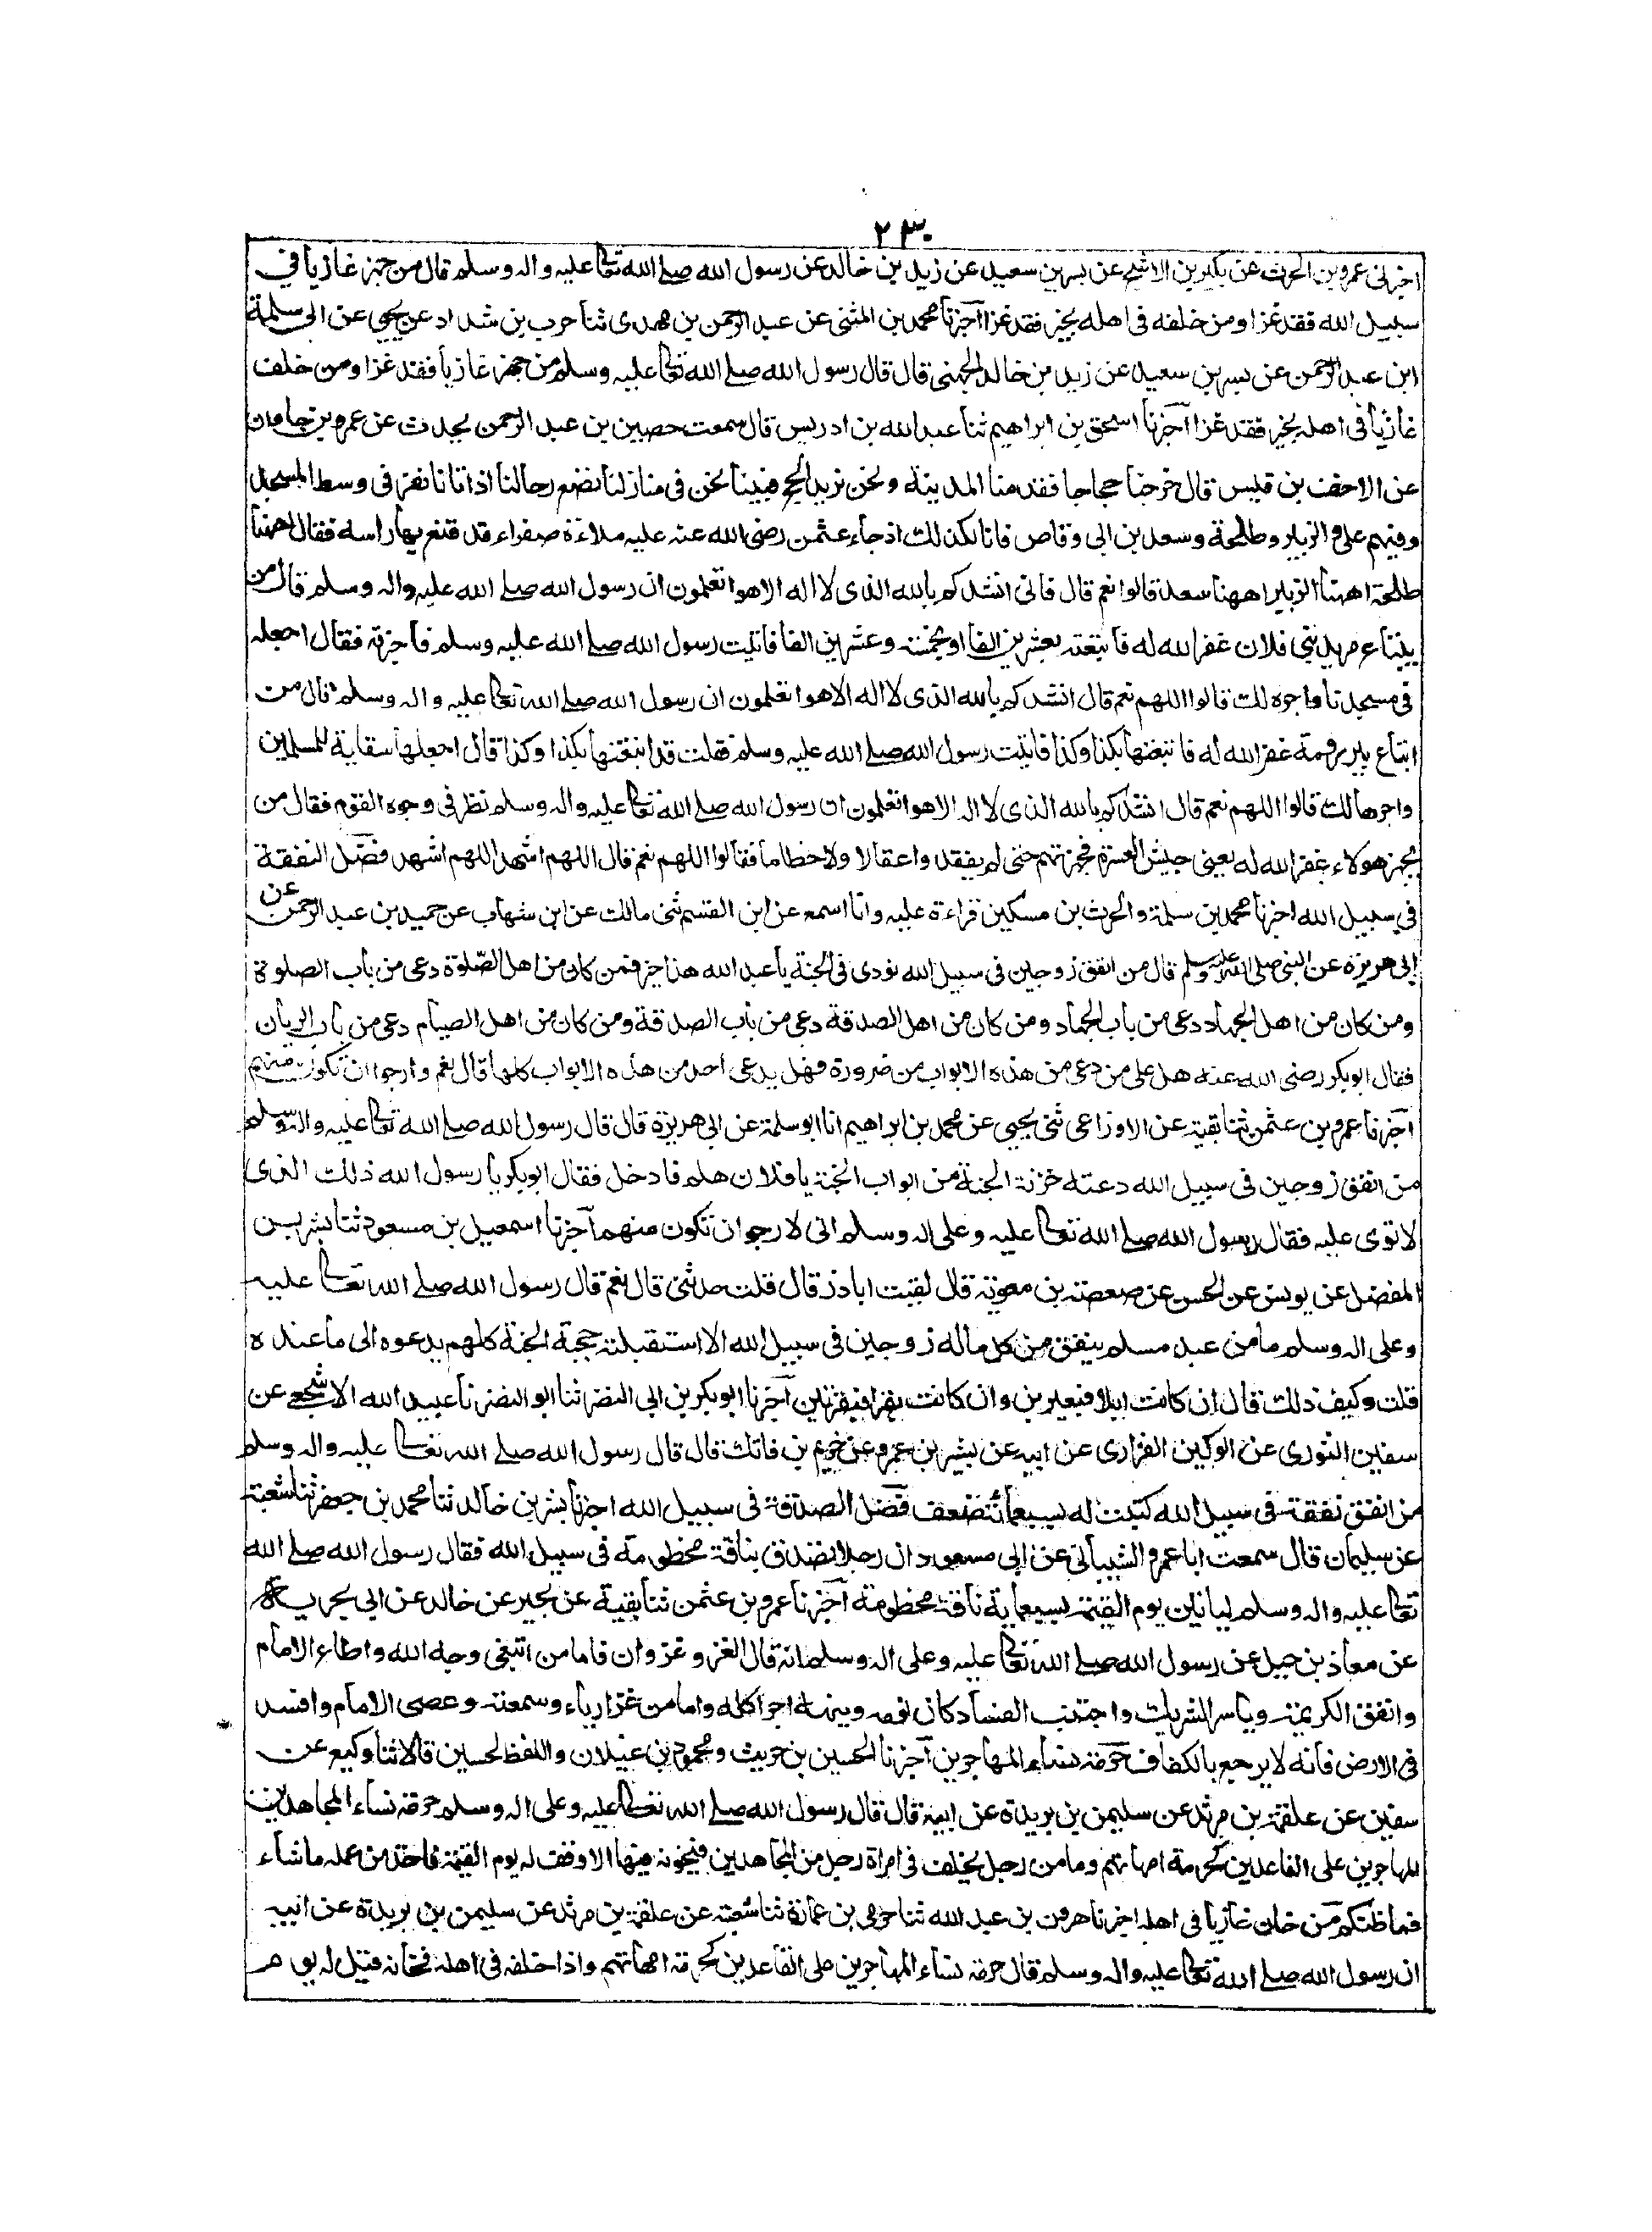 ٢٣٠
اخبرنى عمرو بن الحرث عن بكير بن الاشج عن بسر بن سعيد عن زيد بن خالد عن رسول الله صلے الله تعالٰى عليه واله وسلم قال من جهز غازيا في
سبيل الله فقد غزا ومن خلفه فى اهله بخير فقد غزا اخبرنا محمد بن المثنى عن عبد الرحمن بن مهدى ثنا حرب بن شداد عن يحيى عن ابى سلمة
ابن عبد الرحمن عن بسر بن سعيد عن زيد بن خالد الجهنى قال قال رسول الله صلے الله تعالٰى عليه وسلم من جهز غازيا فقد غزا ومن خلف
غازيا فى اهله بخير فقد غزا اخبرنا اسحق بن ابراهيم ثنا عبد الله بن ادريس قال سمعت حصين بن عبد الرحمن يحدث عن عمرو بن جاوان
عن الاحنف بن قيس قال خرجنا حجاجا فقدمنا المدينة ونحن نريد الحج فبينا نحن فى منازلنا نضع رحالنا اذ اتانا نفر فى وسط المسجد
وفيهم على والزبير وطلحة وسعد بن ابى وقاص فانا لكذلك اذ جاء عثمن رضى الله عنه عليه ملاءة صفراء قد قنع بها راسه فقال اههنا
طلحة اههنا الزبير اههنا سعد قالوا نعم قال فانى انشدكم بالله الذى لا اله الا هو اتعلمون ان رسول الله صلے الله عليه واله وسلم قال من
يبتاع مربد بنى فلان غفر الله له فابتعته بعشرين الفا او بخمسة وعشرين الفا فاتيت رسول الله صلے الله عليه وسلم فاخبرته فقال اجعله
فى مسجدنا واجره لك قالوا اللهم نعم قال انشدكم بالله الذى لا اله الا هو اتعلمون ان رسول الله صلے الله تعالٰى عليه واله وسلم قال من
ابتاع بير رومة غفر الله له فابتعتها بكذا وكذا فاتيت رسول الله صلے الله عليه وسلم فقلت قد ابتعتها بكذا وكذا قال اجعلها سقاية للمسلمين
واجرها لك قالوا اللهم نعم قال انشدكم بالله الذى لا اله الا هو اتعلمون ان رسول الله صلے الله تعالٰى عليه واله وسلم نظر فى وجوه القوم فقال من
يجهز هولاء غفر الله له يعنى جيش العسرة فجهزتهم حتى لم يفقدوا عقالا ولا خطاما فقالوا اللهم نعم قال اللهم اشهد اللهم اشهد فضل النفقة
في سبيل الله اخبرنا محمد بن سلمة والحرث بن مسكين قراءة عليه وانا اسمع عن ابن القسم ثنى مالك عن ابن شهاب عن حميد بن عبد الرحمن عن
ابى هريرة عن النبى صلى الله عليه وسلم قال من انفق زوجين فى سبيل الله نودى فى الجنة يا عبد الله هذا خير فمن كان من اهل الصلوة دعى من باب الصلوة
ومن كان من اهل الجهاد دعى من باب الجهاد ومن كان من اهل الصدقة دعى من باب الصدقة ومن كان من اهل الصيام دعى من باب الريان
فقال ابوبكر رضى الله عنه هل على من دعى من هذه الابواب من ضرورة فهل يدعى احد من هذه الابواب كلها قال نعم وارجو ان تكون منهم
اخبرنا عمرو بن عثمن ثنا بقية عن الاوزاعى ثنى يحيى عن محمد بن ابراهيم انا ابو سلمة عن ابى هريرة قال قال رسول الله صلے الله تعالٰى عليه واله وسلم
من انفق زوجين فى سبيل الله دعته خزنة الجنة من ابواب الجنة يا فلان هلم فادخل فقال ابوبكر يا رسول الله ذلك الذى
لا توى عليه فقال رسول الله صلے الله تعالٰى عليه وعلى اله وسلم انى لارجو ان تكون منهم اخبرنا اسمعيل بن مسعود ثنا بشر بن
المفضل عن يونس عن الحسن عن صعصعة بن معوية قال لقيت اباذر قال قلت حدثنى قال نعم قال رسول الله صلے الله تعالٰى عليه
وعلى اله وسلم ما من عبد مسلم ينفق من كل ماله زوجين فى سبيل الله الا استقبلته حجبة الجنة كلهم يدعوه الى ما عنده
قلت وكيف ذلك قال ان كانت ابلا فبعيرين وان كانت بقرا فبقرتين اخبرنا ابوبكر بن ابى النضر ثنا ابو النضر نا عبيد الله الاشجعى عن
سفين الثورى عن الركين الفزارى عن ابيه عن بشير بن عمرو عن خريم بن فاتك قال قال رسول الله صلے الله تعالٰى عليه واله وسلم
من انفق نفقة فى سبيل الله كتبت له بسبعمائة ضعف فضل الصدقة فى سبيل الله اخبرنا بشر بن خالد ثنا محمد بن جعفر ثنا شعبة
عن سليمان قال سمعت ابا عمرو الشيبانى عن ابى مسعود ان رجلا تصدق بناقة مخطومة فى سبيل الله فقال رسول الله صلے الله
تعالٰى عليه واله وسلم لياتين يوم القيمة بسبعماية ناقة مخطومة اخبرنا عمرو بن عثمن ثنا بقية عن بحير عن خالد عن ابى بحرية
عن معاذ بن جبل عن رسول الله صلے الله تعالٰى عليه وعلى اله وسلم انه قال الغزو غزوان فاما من ابتغى وجه الله واطاع الامام
وانفق الكريمة وياسر الشريك واجتنب الفساد كان نومه ونبهه اجرا كله واما من غزا رياء وسمعة وعصى الامام وافسد
فى الارض فانه لا يرجع بالكفاف حرمة نساء المهاجرين اخبرنا الحسين بن حريث ومحمود بن غيلان واللفظ لحسين قالا ثنا وكيع عن
سفين عن علقمة بن مرثد عن سليمن بن بريدة عن ابيه قال قال رسول الله صلے الله تعالٰى عليه وعلى اله وسلم حرمة نساء المجاهدين
للهاجرين على القاعدين كحرمة امهاتهم وما من رجل يخلف فى امراة رجل من المجاهدين فيخونه فيها الا وقف له يوم القيمة فاخذ من عمله ما شاء
فما ظنكم من خان غازيا فى اهله اخبرنا هرون بن عبد الله ثنا حرمى بن عمارة ثنا شعبة عن علقمة بن مرثد عن سليمن بن بريدة عن ابيه
ان رسول الله صلے الله تعالٰى عليه واله وسلم قال حرمة نساء المهاجرين على القاعدين كحرمة امهاتهم واذا خلفه فى اهله فخانه قيل له يوم